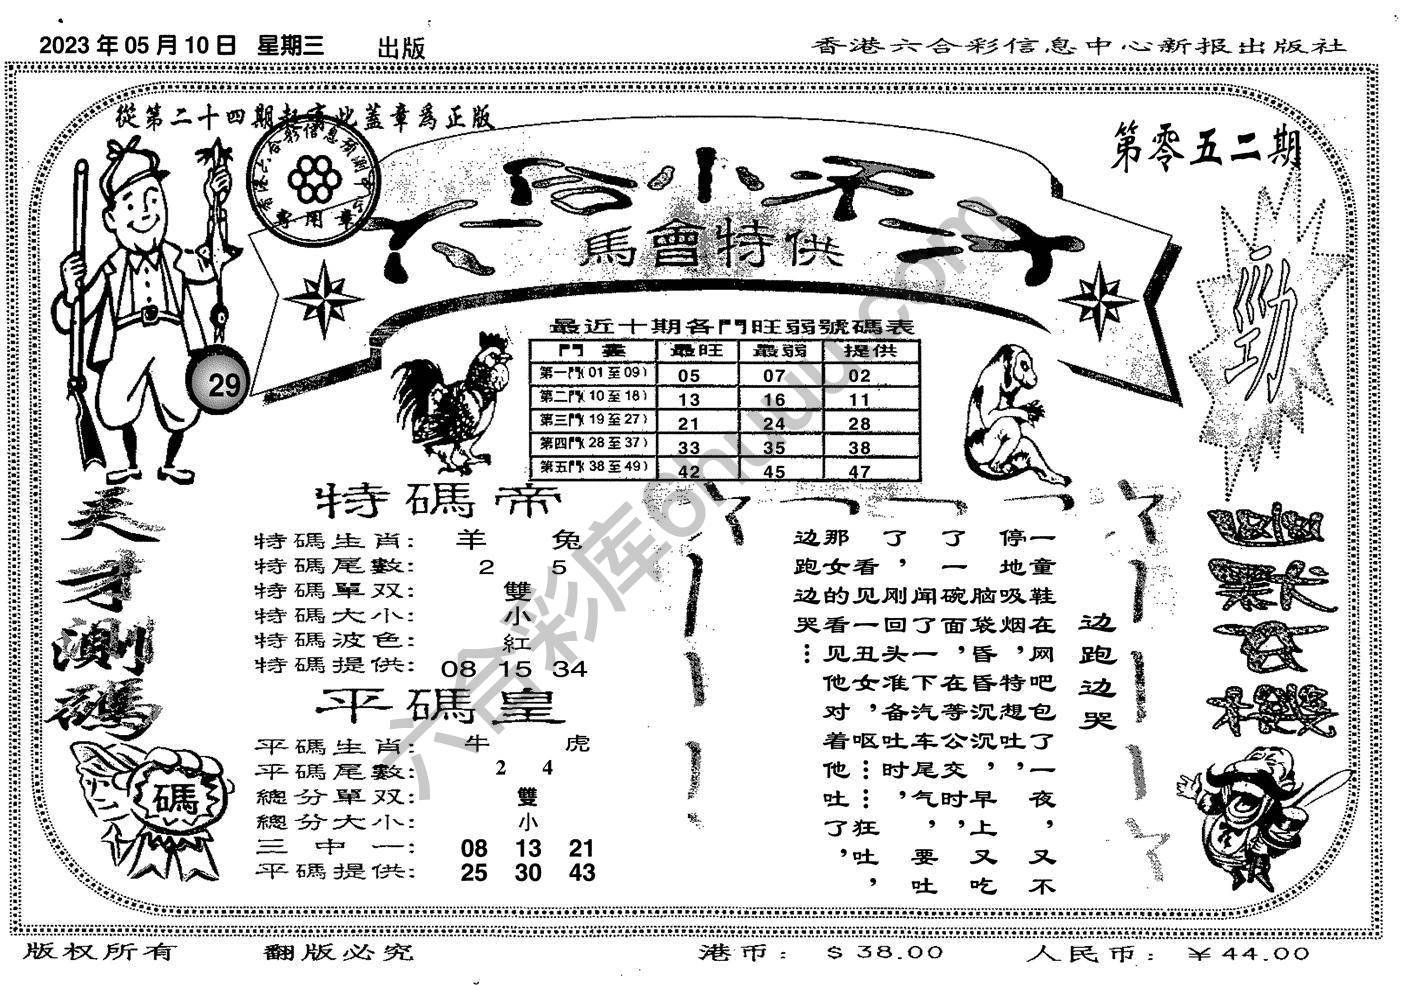 2023 年 05 月 10 日 星期三 出版
香港六合彩信息中心新报出版社
從第二十四期起 此蓋章爲正版
第零五二期
馬會特供
專用章
勁
29
最近十期各門旺弱號碼表
門 最旺 最弱 提供
第一門( 01 至 09) 05 07 02
第二門( 10 至 18) 13 16 11
第三門( 19 至 27) 21 24 28
第四門( 28 至 37) 33 35 38
第五門( 38 至 49) 42 45 47
天才測碼
特碼帝
特碼生肖: 羊 兔
特碼尾數: 2 5
特碼單双: 雙
特碼大小: 小
特碼波色: 紅
特碼提供: 08 15 34
平碼皇
平碼生肖: 牛 虎
平碼尾數: 2 4
總分單双: 雙
總分大小: 小
三中一: 08 13 21
平碼提供: 25 30 43
碼
边跑边哭
一童鞋在网吧包了一夜，又不
停地吸烟，特想吐，
脑袋昏昏沉沉，早上又吃
了一碗面，在等公交时，
闻了一下汽车尾气，要吐
了，刚回头准备吐时，
看见一丑女，呕……狂吐，
那女的看见他对着他吐了，
边跑边哭…
六合彩库6huuu.com
版权所有 翻版必究 港币: $ 38.00 人民币: ￥44.00